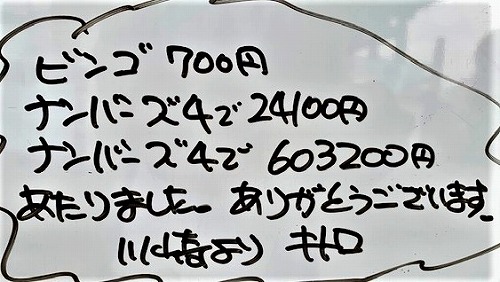 ビンゴ 700円
ナンバーズ4で 24100円
ナンバーズ4で 603200円
あたりました。ありがとうございます。
川崎より キトロ